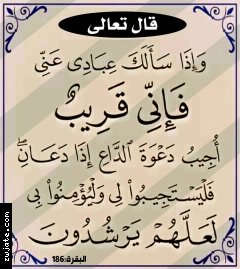 قال تعالى
وَإِذَا سَأَلَكَ عِبَادِى عَنِّى
فَإِنِّى قَرِيبٌ
أُجِيبُ دَعْوَةَ ٱلدَّاعِ إِذَا دَعَانِۖ
فَلْيَسْتَجِيبُوا۟ لِى وَلْيُؤْمِنُوا۟ بِى
لَعَلَّهُمْ يَرْشُدُونَ
البقرة:186
zujate.com